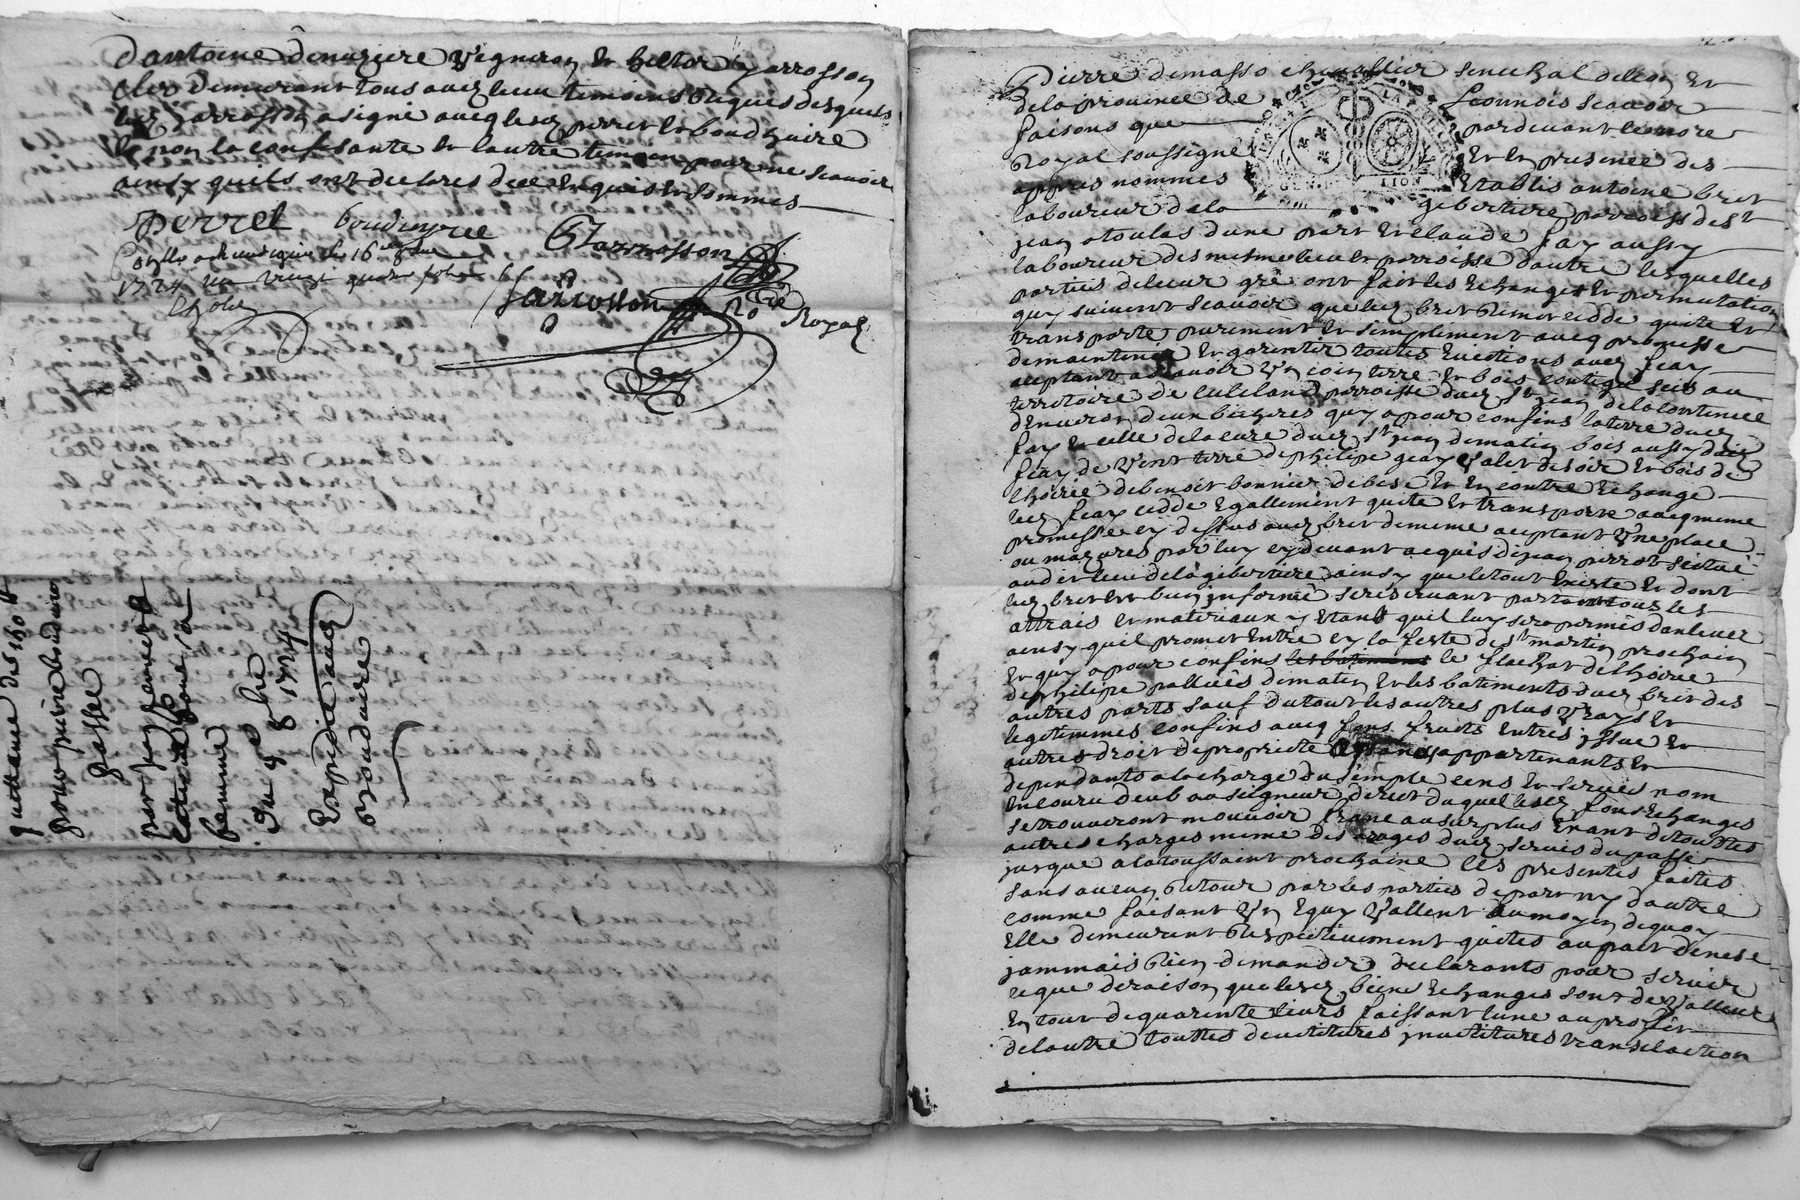 d'antoine denuziere Vigneron et hector jarrosson
clerc demeurant tous audit lieu temoins Requis desquels
ledt jarrosson a signé avec lesd perret et boudoyre
et non la confesante et l'autre temoin pour ne scavoir
ainsy quils ont declarés de ce Enquis et sommes
Perret boudoyre G Jarrosson
1724
Jarrosson No.re Royal
quittance de 150 ll
pour pierre boudoire
passée
femme
Du 9e 8bre
1724
Expedié audit
Boudoire
Pierre demasso chevallier senechal de Lion Et
de la province de Lionnois scavoir
faisons que pardevant le no.re
Royal soussigné Et En presence des
appres nommes Etablis antoine bret
GEN. DE LION
laboureur de la giboitiere parroisse de St
jean a toulas d'une part Et claude fay aussy
laboureur des mesme lieu Et parroisse d'autre lesquelles
parties de leur gré ont fait les Echanges Et permutation
quy suivent scavoir que led bret Remet cedde quite Et
transporte purement Et simplement avec promesse
de maintenir Et garentir toutes Evictions aud fay
acceptant a scavoir Un coin terre Et bois contigus scis au
territoire de parroisse dud St jean de la contenue
d'Environ deux bicheres quy a pour confins la terre dud
fay Et celle de la cure dud St jean de matin bois aussy dud
fay de Vent terre de philipe jean Valet de soir Et bois de
l'hoirie de benoit bonnier de bise Et En contre Echange
led fay cedde Egallement quite Et transporte avec meme
promesse cy dessus aud bret de meme acceptant Une place
ou mazures par luy cy devant acquis de jean pirrot scitué
audit lieu de la giboitiere ainsy que le tout Existe Et dont
led bret Est bien informé se reservant partant tous les
attrais Et materiaux y Etant quil luy sera permis d'enlever
ainsy quil promet Entre cy la feste de St martin prochain
Et quy a pour confins les batiments le de l'hoirie
de philipe de matin Et les batiments dud bret des
autres parts sauf du tout les autres plus Vrays Et
legitimmes confins avec fons fruits Entrés issue Et
autres droit de proprieté appartenants Et
dependants a la charge du simple cens Et servis nom
Encouru deub au seigneur direct duquel lesd fons Echanges
se trouveront mouvoir franc au surplus Etant de touttes
autres charges meme des dud servis du passé
jusque a la toussaint prochaine les presentes faites
sans aucun Retour par les parties de part ny d'autre
comme faisant Un Equy Vallent au moyen de quoy
Elle demeurent Respectivement quites au pact de ne se
jammais Rien demander declarants pour servir
ce que de raison que lesd biens Echanges sont de Valleur
En tout de quarente livres faissant l'une au proffit
de l'autre touttes devetitures investitures translaction